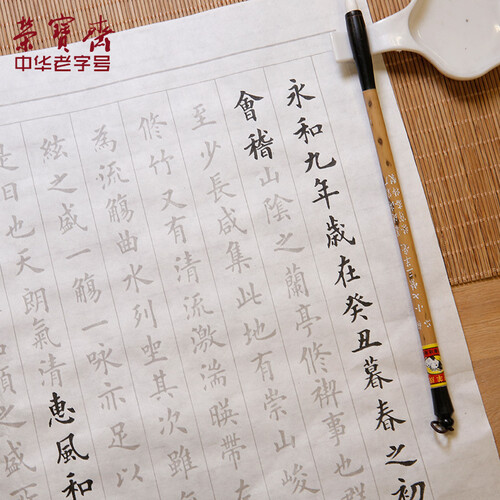 榮寶齋
中华老字号
永和九年歲在癸丑暮春之初
會稽山陰之蘭亭修禊事也群
至少長咸集此地有崇山峻
修竹又有清流激湍暎帶
為流觴曲水列坐其次雖
絃之盛一觴一咏亦足以
是日也天朗氣清惠風和
類之盛